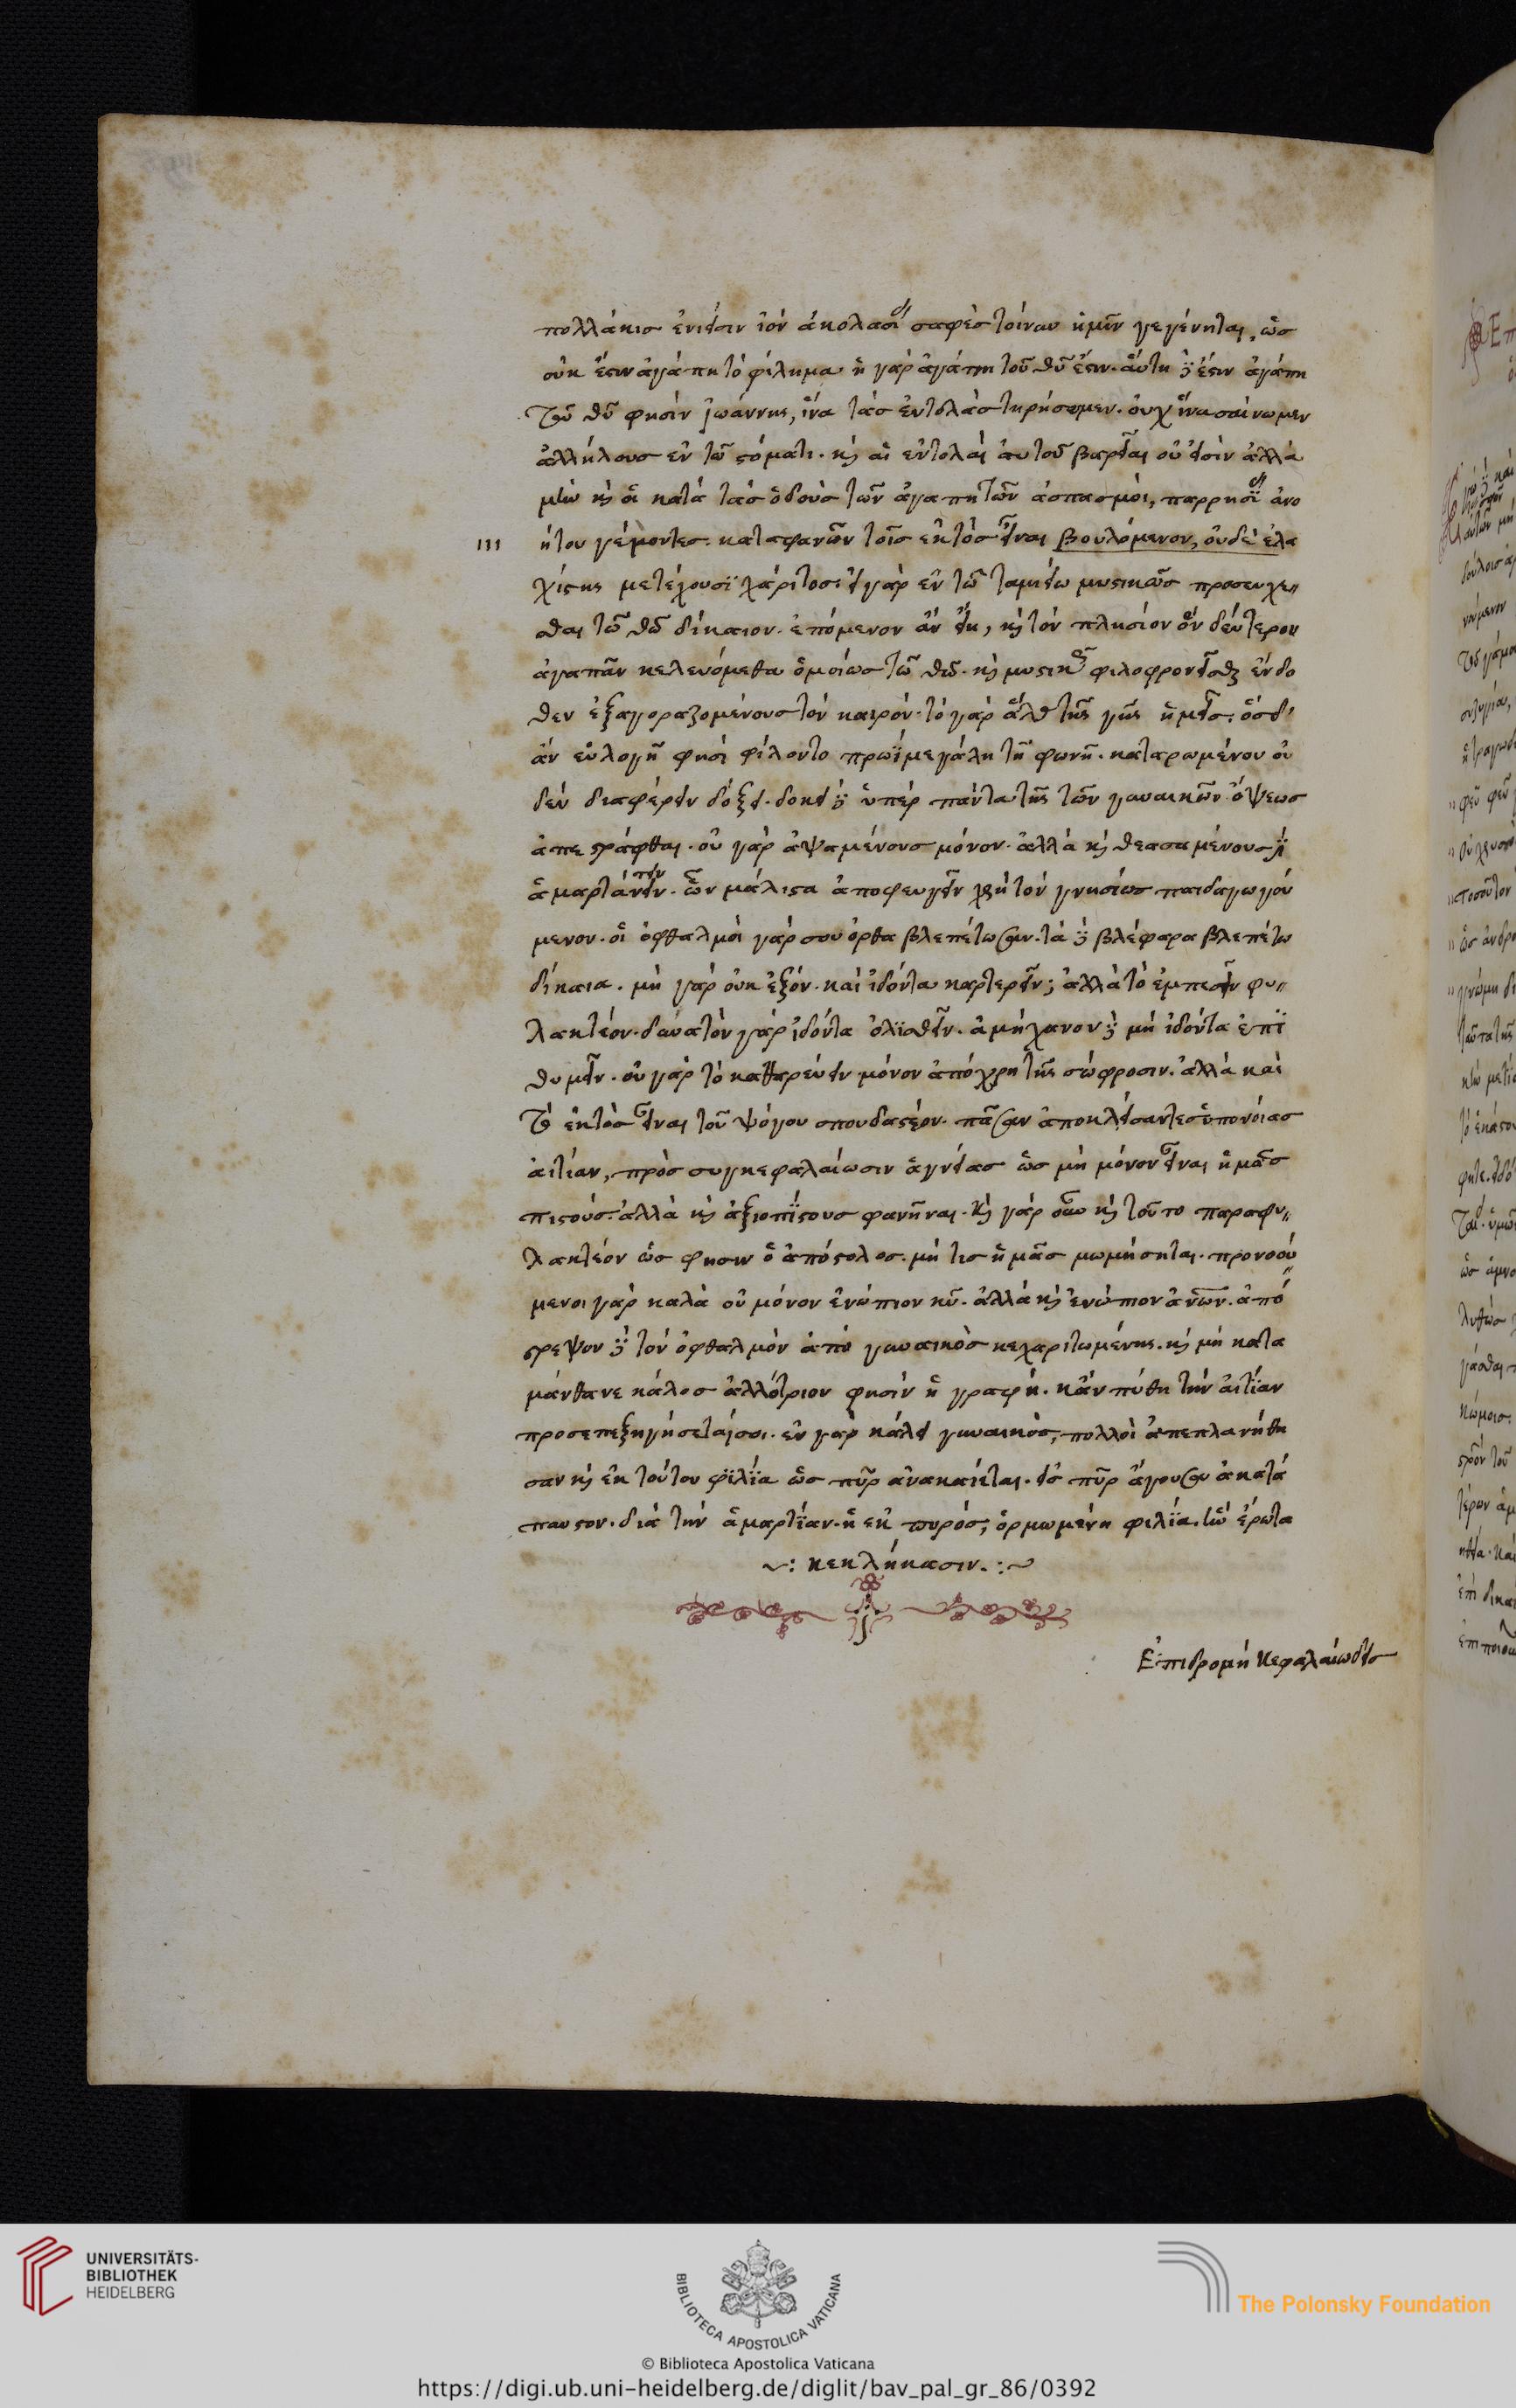 πολλάκισ ἐνιεῖσιν ἰὸν ἀκολασίασ σαφὲσ τοίνυν ἡμῖν γεγένηται, ὡσ
οὐκ ἔστιν ἀγάπη τὸ φίλημα ἡ γὰρ ἀγάπη τοῦ θῦ ἔστιν. ἄυτη δέ ἐστιν ἀγάπη
τοῦ θῦ φησὶν ἰωάννης, ἵνα τὰσ ἐντολὰσ τηρήσωμεν. οὐχ ἵνα σαίνωμεν
ἀλλήλουσ ἐν τῶ στόματι. καὶ αἱ ἐντολαὶ ἀυτοῦ βαρεῖαι οὐ εἰσὶν ἀλλὰ
μὴν καὶ οἱ κατὰ τὰσ ὁδοὺσ τῶν ἀγαπητῶν ἀσπασμὸι, παρρησίασ ἀνο
ήτου γέμοντεσ. καταφανῶν τοῖσ ἐκτὸσ εἶναι βουλόμενον, οὐδὲ ἐλα
χίστης μετέχουσϊ χάριτοσ εἰ γὰρ ἐν τῶ ταμιείω μυστικῶσ προσευχε
σθαι τῶ θῶ δίκαιον. ἑπόμενον ἂν εἴη, καὶ τὸν πλησίον ὃν δεύτερον
ἀγαπᾶν κελευόμεθα ὁμοίωσ τῶ θῶ. καὶ μυστικῶσ φιλοφρονεῖσθαι ἔνδο
θεν ἐξαγοραζομένουσ τὸν καιρόν. τὸ γὰρ ἅλασ τῆς γῆς ἡμεῖσ. ὅσ δ'
ἂν εὐλογῆ φησὶ φίλον τὸ πρωῒ μεγάλη τῆ φωνῆ. καταρωμένου οὐ
δὲν διαφέρειν δόξει. δοκεῖ δὲ ὑπὲρ πάντα τῆς τῶν γυναικῶν ὄψεωσ
ἀπεστράφθαι. οὐ γὰρ ἁψαμένουσ μόνον. ἀλλὰ καὶ θεασαμένουσ ἔστιν
ἁμαρτάνειν. ὧν μάλιστα ἀποφευγεῖν χρὴ τὸν γνησίωσ παιδαγωγού
μενον. οἱ ὀφθαλμὸι γάρ σου ὀρθα βλεπέτωσαν. τὰ δὲ βλέφαρα βλεπέτω
δίκαια. μὴ γὰρ οὐκ ἐξόν. καὶ ἰδόντα καρτερεῖν; ἀλλὰ τὸ ἐμπεσεῖν φυ
λακτέον. δυνατὸν γὰρ ἰδόντα ὀλϊσθεῖν. ἀμήχανον δὲ μὴ ἰδόντα ἐπϊ
θυμεῖν. οὐ γὰρ τὸ καθαρεύειν μόνον ἀπόχρη τῆς σώφροσιν. ἀλλὰ καὶ
τὸ ἐκτὸσ εἶναι τοῦ ψόγου σπουδαστέον. πᾶσαν ἀποκλείσαντεσ ὑπονόιασ
ἀιτίαν, πρὸσ συγκεφαλαίωσιν ἁγνείασ ὡσ μὴ μόνον εἶναι ἡμᾶσ
πιστούσ. ἀλλὰ καὶ ἀξιοπΐστουσ φανῆναι. καὶ γὰρ οὖν καὶ τοῦτο παραφυ
λακτέον ὡσ φησιν ὁ ἀπόστολοσ. μή τισ ἡμᾶσ μωμήσηται. προνοού
μενοι γὰρ καλὰ οὐ μόνον ἐνώπιον κῦ. ἀλλὰ καὶ ἐνώπιον ἀνῶν. ἀπό
στρεψον δὲ τὸν ὀφθαλμὸν ἀπὸ γυναικὸσ κεχαριτωμένης. καὶ μὴ κατα
μάνθανε κάλοσ ἀλλότριον φησὶν ἡ γραφή. κἂν πύθη τὴν ἀιτΐαν
προσεπεξηγήσεταί σοι. ἐν γὰρ κάλει γυναικὸς, πολλοὶ ἀπεπλανήθη
σαν καὶ ἐκ τούτου φϊλΐα ὡσ πῦρ ἀνακαίεται. εἰσ πῦρ ἄγουσαν ἀκατά
παυστον. διὰ τὴν ἁμαρτΐαν. ἡ ἐκ πυρόσ, ὁρμωμένη φιλΐα. ὃν ἔρωτα
~: κεκλήκασιν. :~
Ἐπιδρομὴ Κεφαλαιώδεισ
UNIVERSITÄTS-
BIBLIOTHEK
HEIDELBERG
BIBLIOTECA APOSTOLICA VATICANA
The Polonsky Foundation
© Biblioteca Apostolica Vaticana
https://digi.ub.uni-heidelberg.de/diglit/bav_pal_gr_86/0392